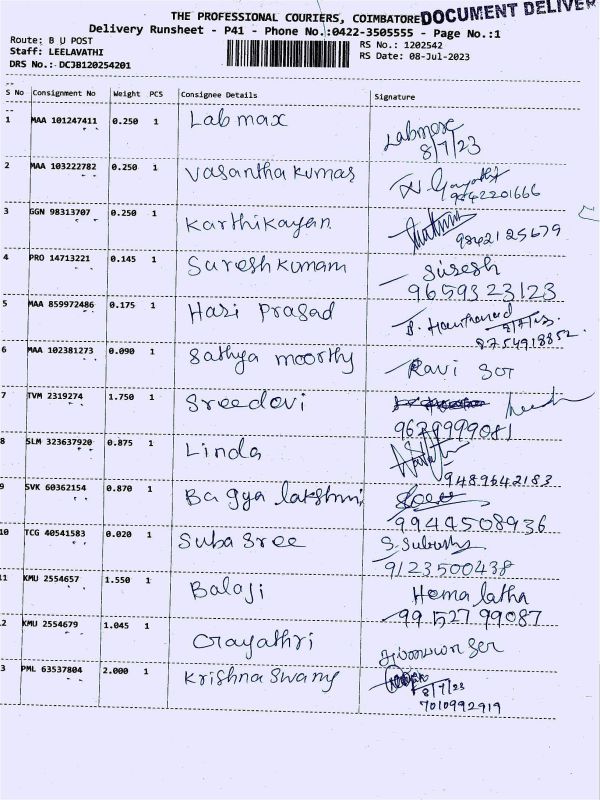 THE PROFESSIONAL COURIERS, COIMBATORE DOCUMENT DELIVER
Delivery Runsheet - P41 - Phone No.:0422-3505555 - Page No.:1
Route: B U POST
RS No.: 1202542
Staff: LEELAVATHI
RS Date: 08-Jul-2023
DRS No.:-DCJB120254201
S No Consignment No Weight PCS Consignee Details Signature
1 MAA 101247411 0.250 1 Labmax Labmax
8/7/23
2 MAA 103222782 0.250 1 Vasantha kumar
9842201666
3 GGN 98313707 0.250 1 Karthikayan
9842125679
4 PRO 14713221 0.145 1 Sureshkumam Suresh
9659323123
5 MAA 859972486 0.175 1 Hari Prasad
8754918852
6 MAA 102381273 0.090 1 Sathya moorthy Ravi
7 TVM 2319274 1.750 1 Sreedevi
9629999081
8 SLM 323637920 0.875 1 Linda
9489642183
9 SVK 60362154 0.870 1 Bagya lakshmi
9944508936
10 TCG 40541583 0.020 1 Suba Sree
9123500438
11 KMU 2554657 1.550 1 Balaji Hema latha
99527 99087
2 KMU 2554679 1.045 1 Gayathri
3 PML 63537804 2.000 1 Krishna Swamy
8/7/23
7010992919